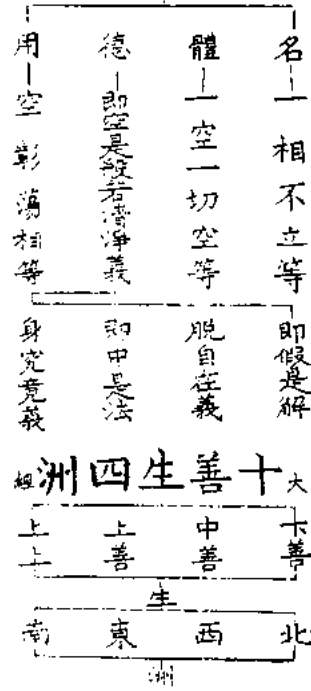 名 一相不立等
體 一空一切空等
德 即空是般若清淨義
用 空彰蕩相等
即假是解
脫自在義
即中是法
身究竟義
十善生四洲 大
下善
中善
上善
上上
生
北
西
東
南
洲